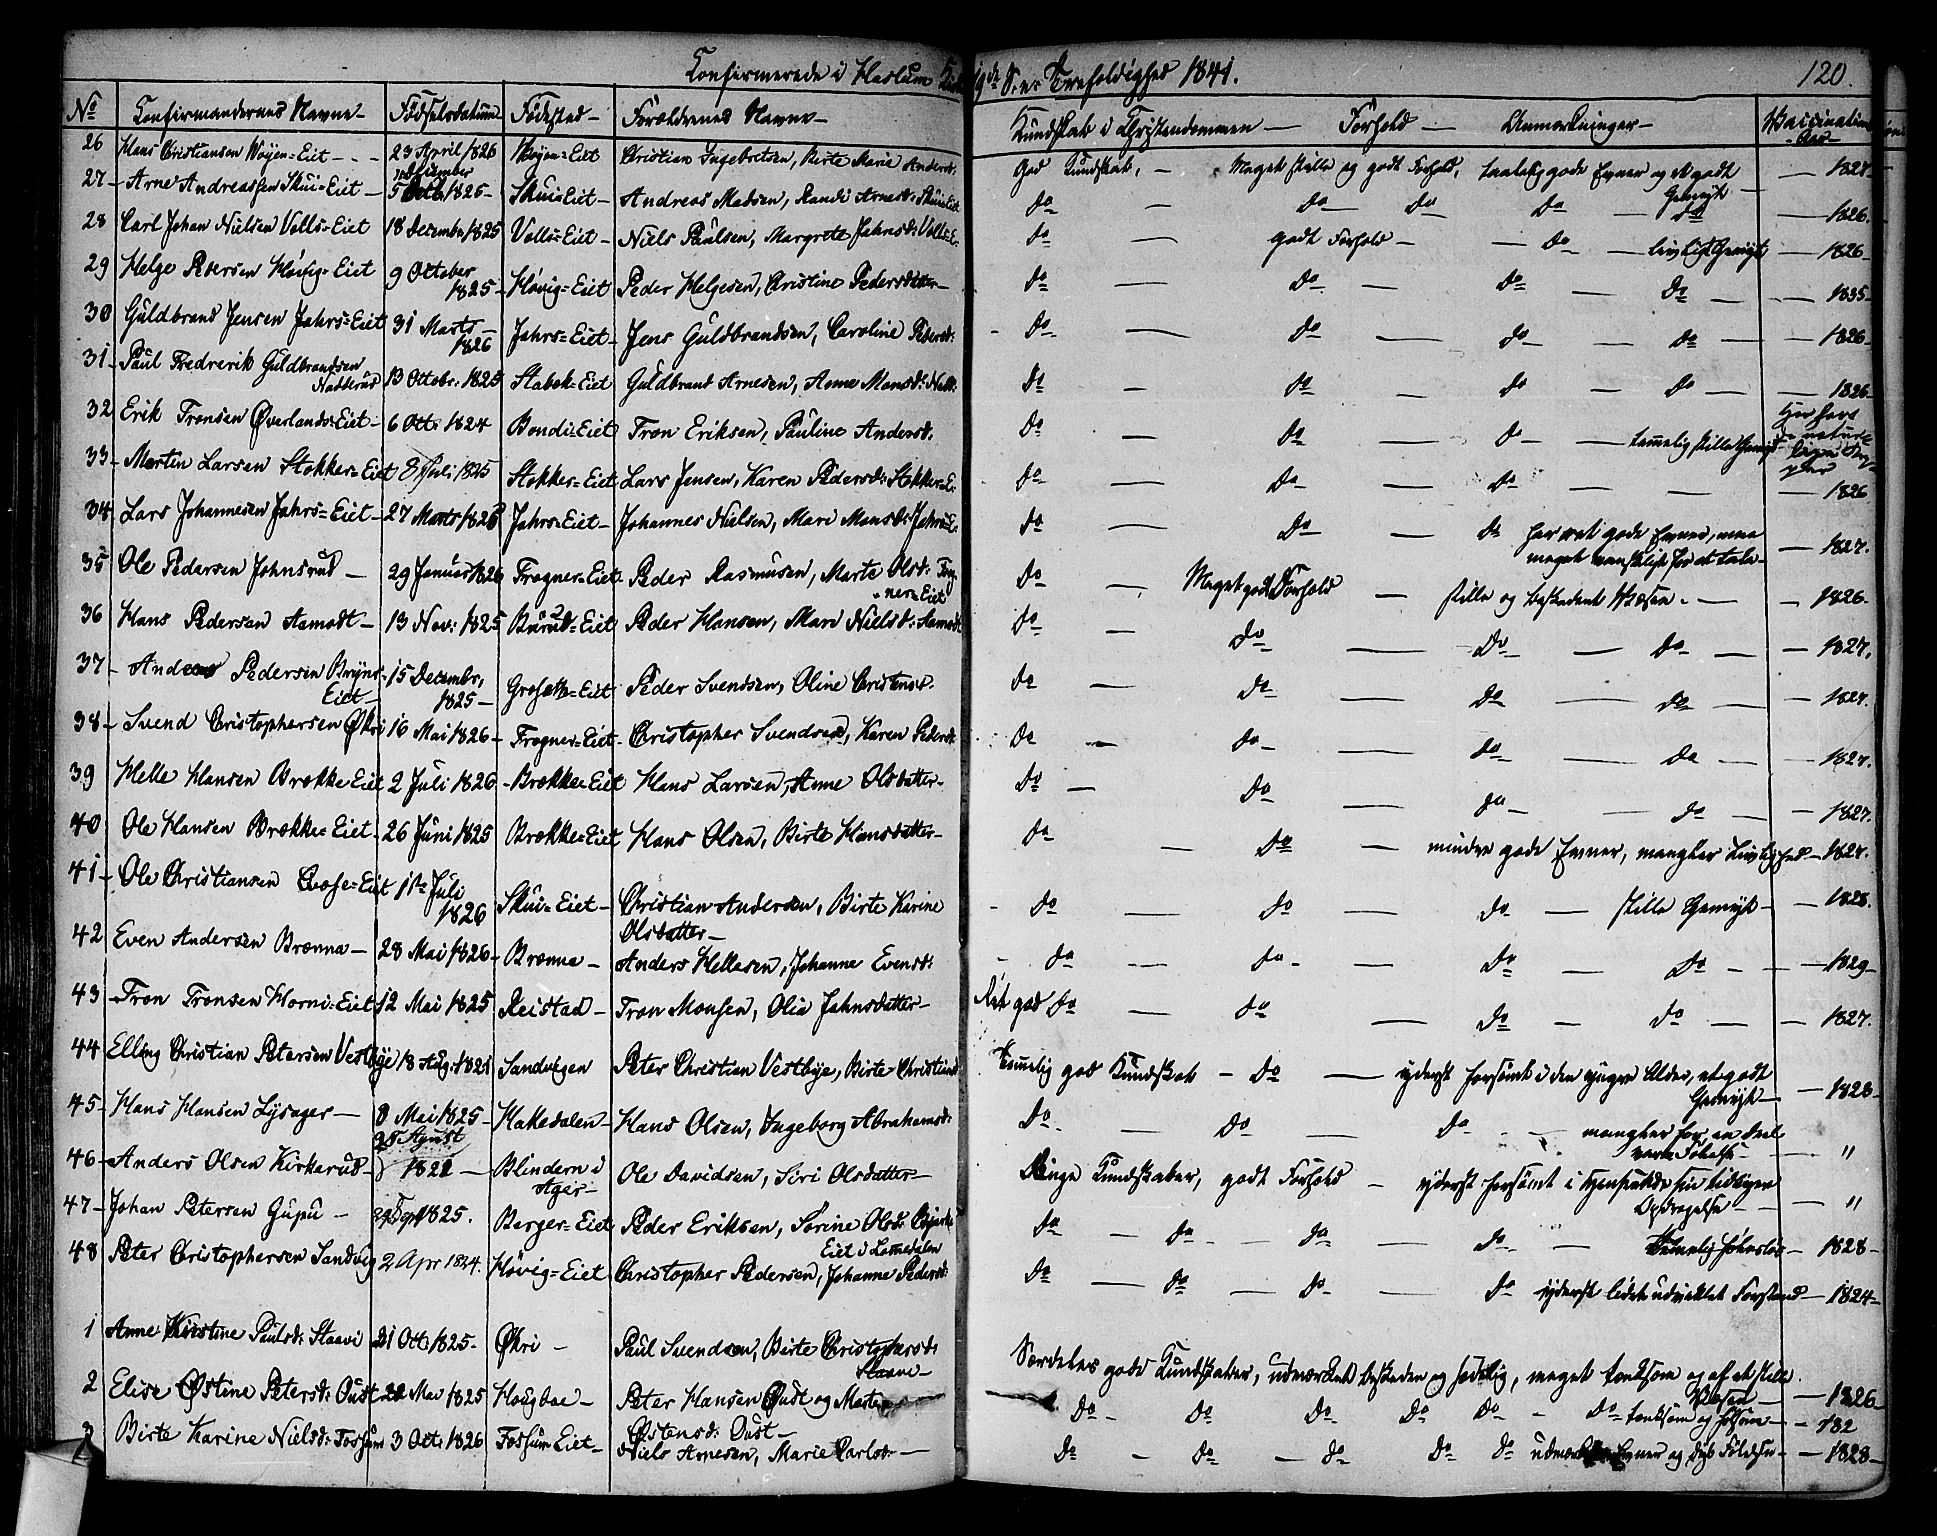 Confirmerede i Haslum 5 S. e. Trefoldighed 1841. 120.
No Confirmandernes Navne Fødselsdatum Fødested Forældrenes Navne Kundskab i Christendommen Forhold Anmærkninger Vaccinations Aar
26 Hans Christiansen Wøyen=Eiet 23 April 1826 Wøyen=Eiet Christian Ingebretsen, Birte Marie Andersd: God Kundskab, Meget stille og godt Forhold, gode Evner og et godt Gemyt 1827
27 Arne Andreassen Skui=Eiet 5 December 1825 Skui=Eiet Andreas Madsen, Randi Arnesd: Skui=Eiet do do do do do 1826
28 Carl Johan Nielsen Volls=Eiet 18 Decembr 1825 Volls=Eiet Niels Paulsen, Margrete Jahnsd: Volls=E. do godt Forhold do livligt Gemyt 1826
29 Helge Pedersen Høvig=Eiet 9 October 1825 Høvig=Eiet Peder Helgesen, Christine Pedersdatter do do do do 1835
30 Guldbrand Jensen Jahrs=Eiet 31 Marts 1826 Jahrs=Eiet Jens Guldbrandsen, Caroline Pedersd: do do do do 1826
31 Paul Fredrerik Guldbrandsen Nadderud 13 Octobr: 1825 Stabek=Eiet Guldbrand Arnesen, Anne Monsd: do do do do 1826
32 Erik Tronsen Øverlands=Eiet 6 Oct: 1824 Bondi=Eiet Tron Eriksen, Pauline Andersd: do do do temmelig stille Gemyt
33 Martin Larsen Stokker=Eiet 8 Juli 1825 Stokker=Eiet Lars Jensen, Karen Pedersd: Stokker=E. do do do 1826
34 Lars Johannesen Jahrs=Eiet 27 Marts 1826 Jahrs=Eiet Johannes Nielsen, Mari Monsd: Jahrs=E. do do do har ret gode Evner, men meget vanskeligt for at tale 1827.
35 Ole Pedersen Johnsrud 29 Januar 1826 Frogner=Eiet Peder Rasmusen, Marte Olsd: Frogner=Eiet do Meget godt Forhold stille og beskedent Væsen 1826
36 Hans Pedersen Aamodt 13 Nov: 1825 Bærud=Eiet Peder Hansen, Mari Nielsd: Aamodt do do do do 1827.
37 Andreas Pedersen Bryns=Eiet 15 Decembr, 1825 Eiet Peder Svendsen, Oline Christensd. do do do do 1827.
38 Svend Christophersen Økri 16 Mai 1826 Frogner=Eiet Christopher Svendsen, Karen Pedersd: do do do do 1827.
39 Helle Hansen Brække=Eiet 2 Juli 1826 Brække=Eiet Hans Larsen, Anne Olsdatter do do do do 1827.
40 Ole Hansen Brække=Eiet 26 Juni 1825 Brække=Eiet Hans Olsen, Birte Hansdatter do do mindre gode Evner, mangler Livlighed 1827.
41 Ole Christiansen Eiet 1ste Juli 1826 Skui=Eiet Christian Andersen, Birte Karine Olsdatter do do do stille Gemyt 1828.
42 Even Andersen Brenna 28 Mai 1826 Brenna Anders Hellesen, Johanne Evensd: do do do do 1829
43 Tron Tronsen Horni=Eiet 12 Mai 1825 Reistad Tron Monsen, Olia Jahnsdatter Ret god do do do do 1827.
44 Elling Christian Petersen Vestbye 18 Aug. 1821 Sandvigen Peter Christian Vestbye, Birte Temmelig god Kundskab do yderst forsømt i den yngre Alder, et godt Gemyt 1823
45 Hans Hansen Lysager 8 Mai 1825 Hakedalen Hans Olsen, Ingeborg Abrahamsd: do do do mangler for en Deel "
46 Anders Olsen Kirkerud 25 August 1821 Blindern i Ager Ole Davidsen, Siri Olsdatter Ringe Kundskaber, godt Forhold yderst forsømt i Henseende sin tidligere Opdragelse "
47 Johan Petersen Gupu 29 Sept 1825. Berger=Eiet Peder Eriksen, Sørine Olsd: Eiet i Lomedalen do do do do 1828
48 Peter Christophersen Sandvig 2 Apr 1824. Høvig=Eiet Christopher Pedersen, Johanne Pedersd: do do do do yderst lidet udviklet Forstand 1824
1 Anne Kirstine Paulsd: Staavi 21 Oct: 1825 Økri Paul Svendsen, Birte Christophersd: Staavi Særdeles gode Kundskaber, udmærket beskeden og sædelig, meget tænksom og af et stille Væsen 1826
2 Elise Østine Petersd: Oust 22 Mai 1825 Hougboe Peter Hansen Oust og Marte Østensd: Oust do do do do do do tænksom og 182
3 Birte Karine Nielsd: Fossum 3 Oct: 1826 Fossum Eiet Niels Arnesen, Marie Carlsd: do do do do do Evner og dyb Følelse 1828